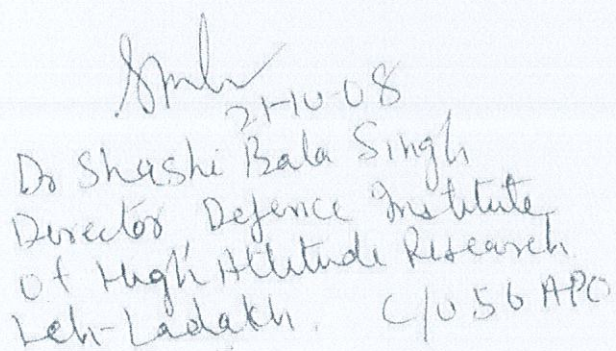 21-10-08
Dr Shashi Bala Singh
Director, Defence Institute
Of High Altitude Research
Leh-Ladakh. C/O 56 APO